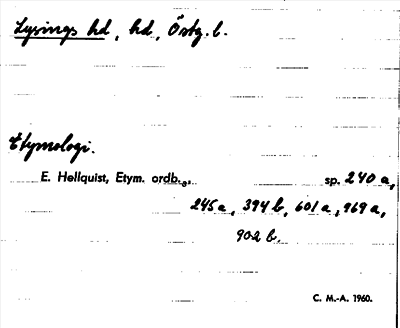 Lysings hd, hd, Östg. l.
Etymologi.
E. Hellquist, Etym. ordb., sp. 240 a,
245 a, 394 b, 601 a, 969 a,
902 b.
C. M.-A. 1960.